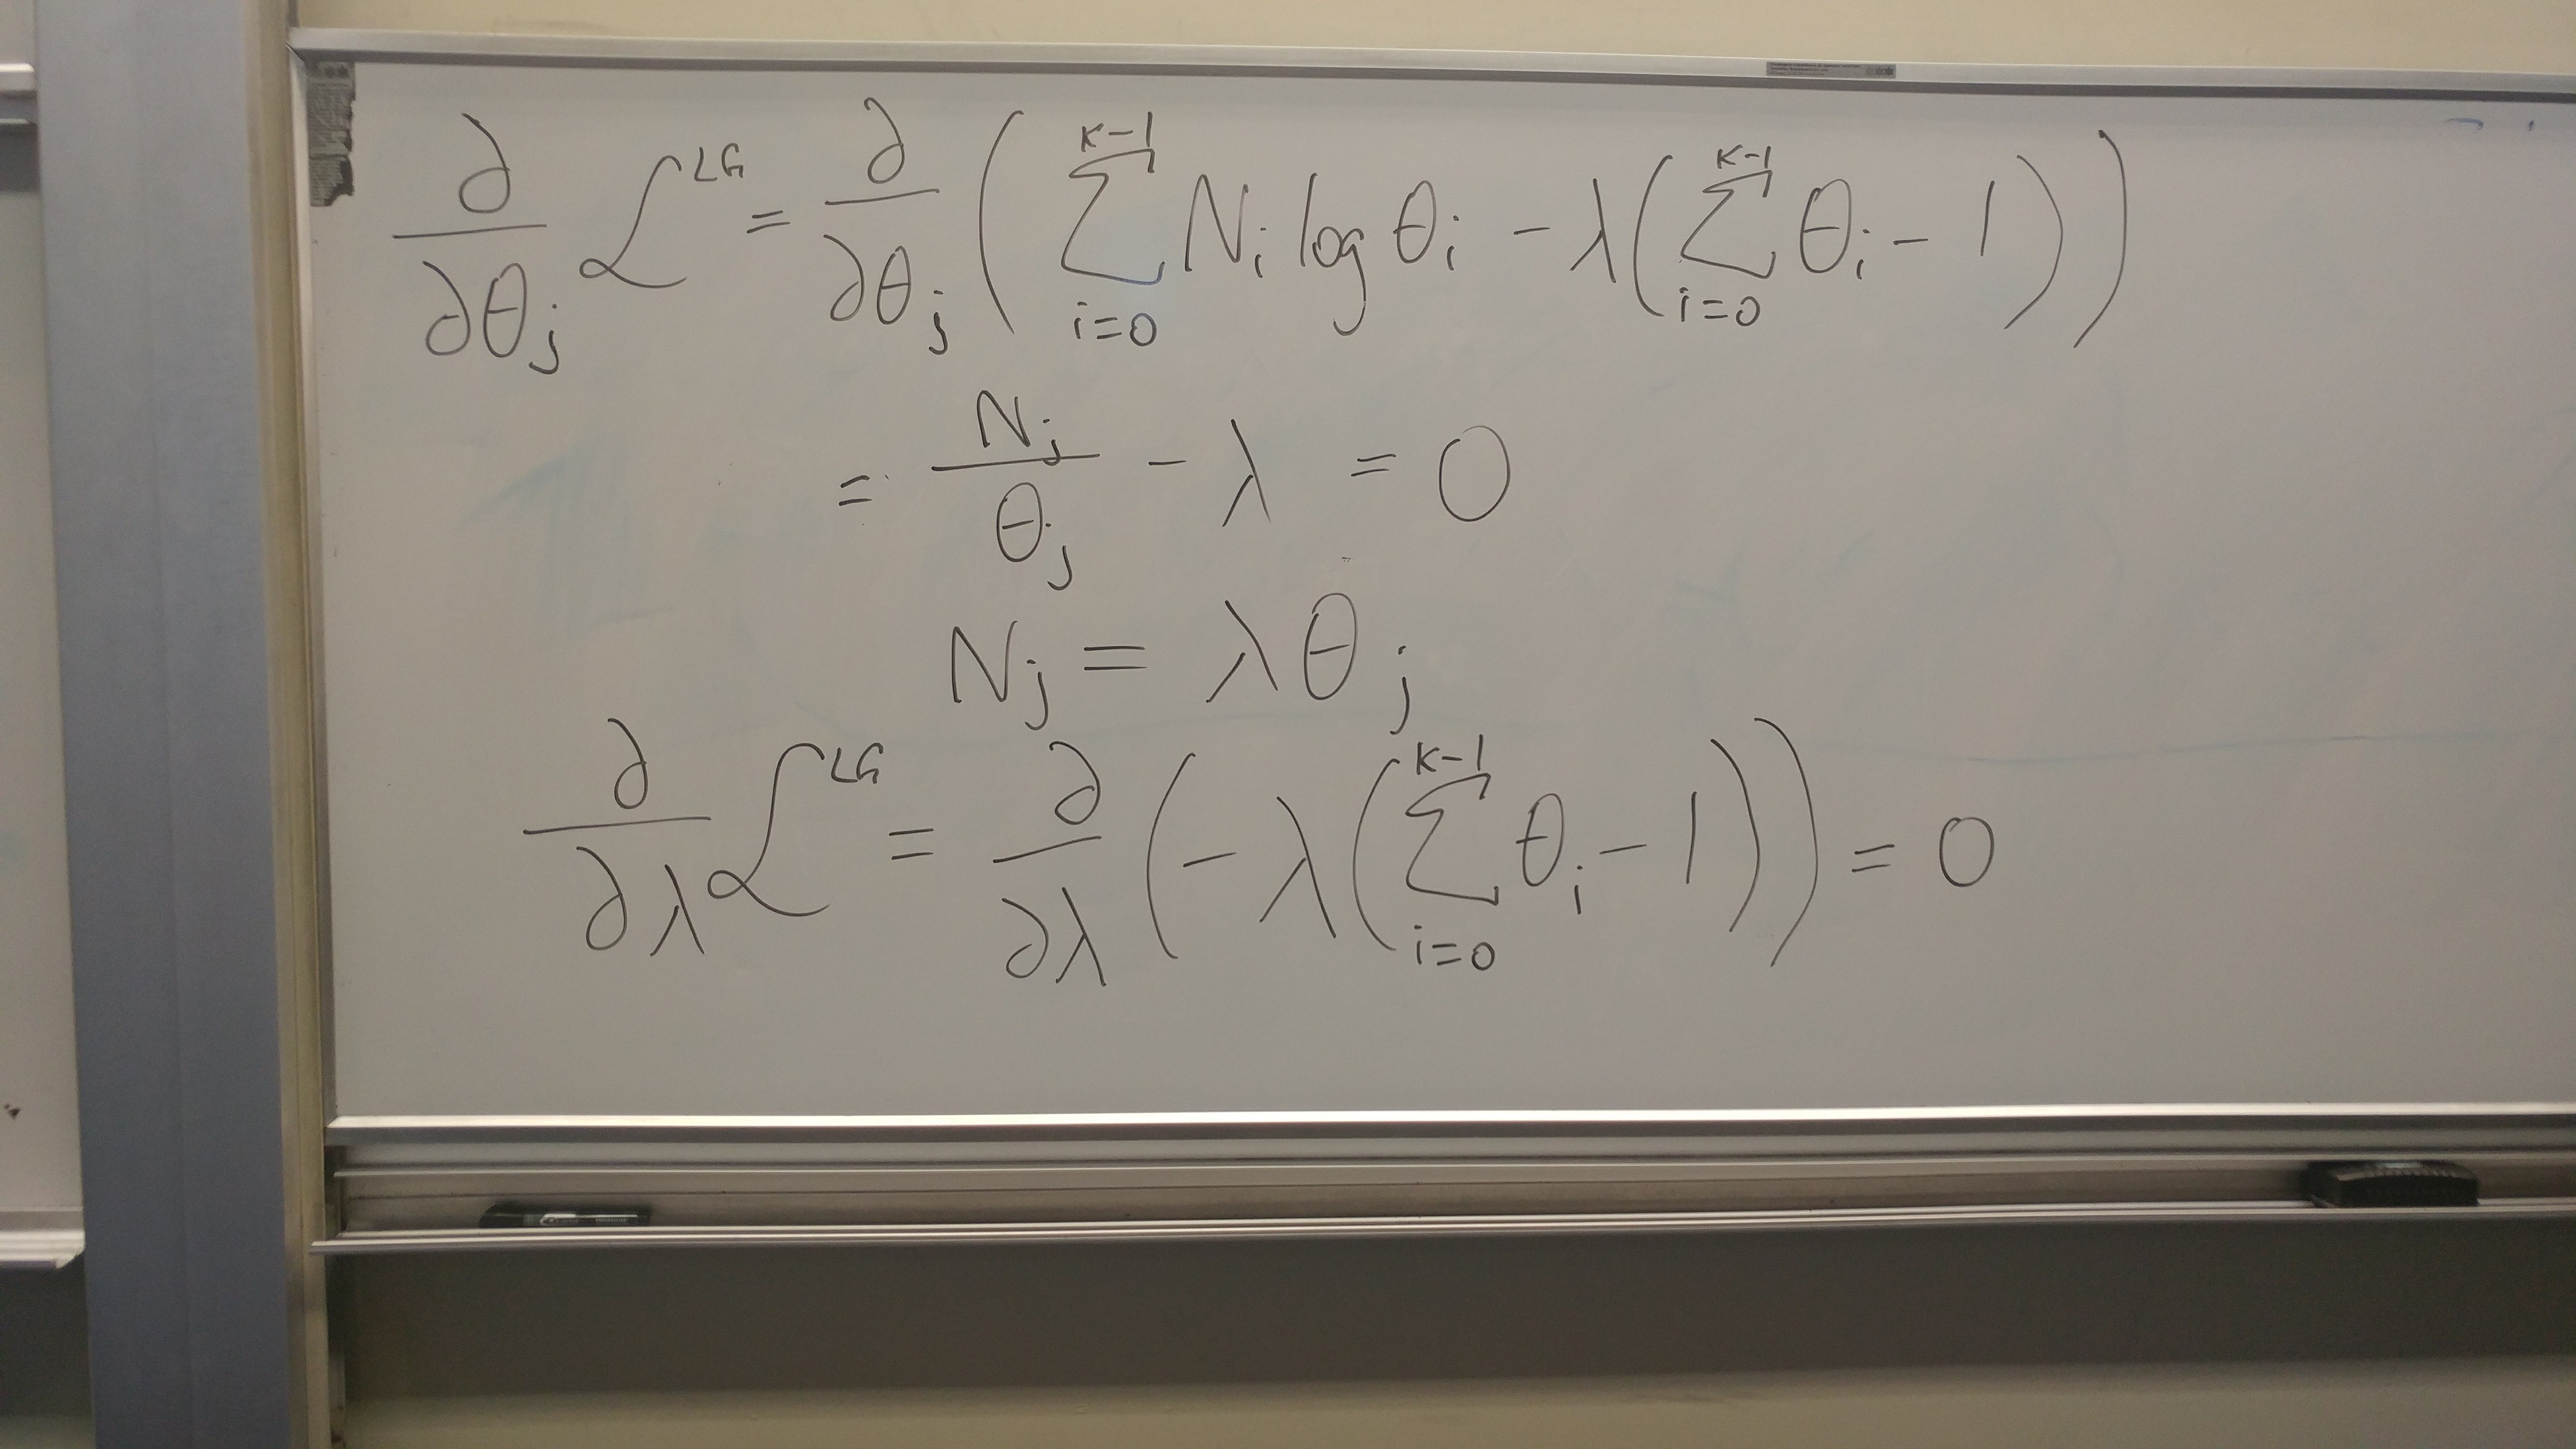 ∂/∂θ_j ℒ^{LG} = ∂/∂θ_j ( ∑_{i=0}^{K-1} N_i log θ_i - λ( ∑_{i=0}^{K-1} θ_i - 1 ) )
= N_j/θ_j - λ = 0
N_j = λθ_j
∂/∂λ ℒ^{LG} = ∂/∂λ ( -λ( ∑_{i=0}^{K-1} θ_i - 1 ) ) = 0